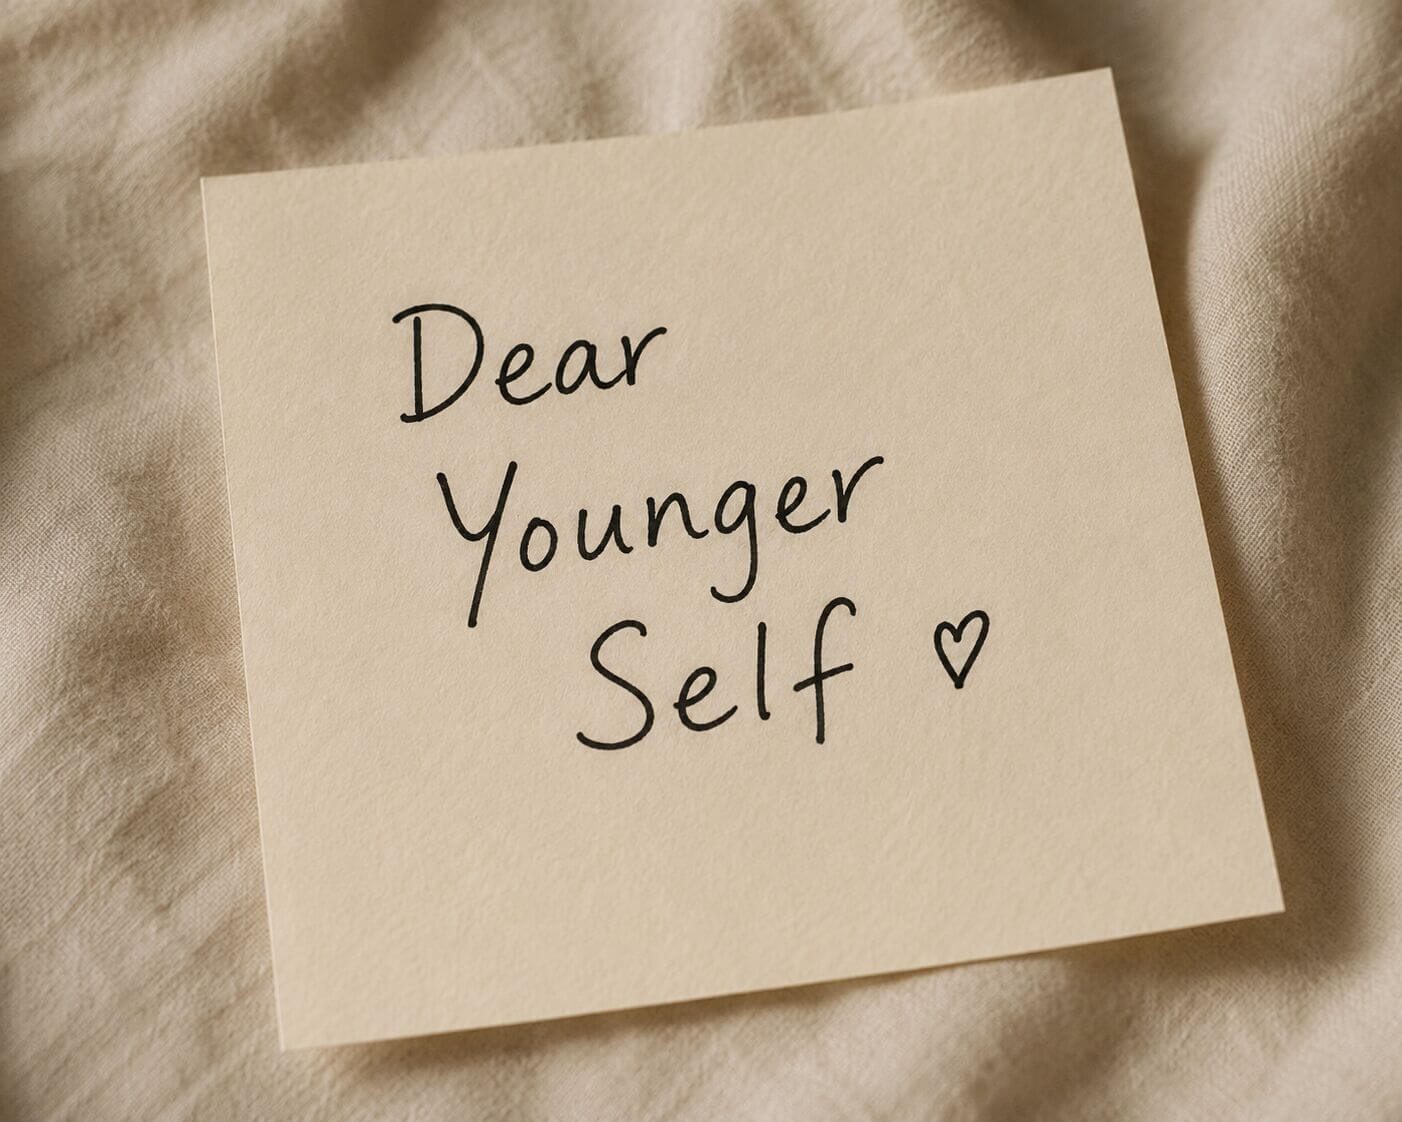 Dear
Younger
Self ♡